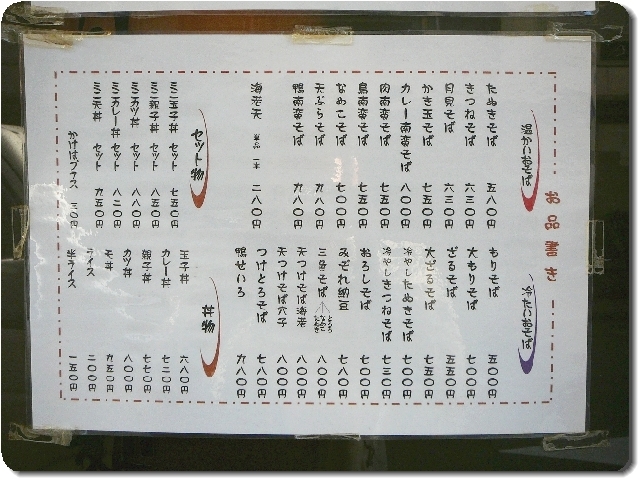 お品書き
温かいおそば
たぬきそば 五八〇円
きつねそば 六三〇円
月見そば 六三〇円
かき玉そば 七五〇円
カレー南蛮そば 八〇〇円
肉南蛮そば 七五〇円
鳥南蛮そば 七五〇円
なめこそば 七〇〇円
天ぷらそば 九八〇円
鴨南蛮そば 九八〇円
海老天 単品 一本 二八〇円
冷たいおそば
もりそば 五〇〇円
大もりそば 七〇〇円
ざるそば 五五〇円
大ざるそば 七五〇円
冷やしたぬきそば 六八〇円
冷やしきつねそば 七三〇円
おろしそば 七〇〇円
みぞれ納豆 七八〇円
三色そば 八〇〇円
天つけそば海老 八〇〇円
天つけそば穴子 八〇〇円
つけとろそば 七八〇円
鴨せいろ 九八〇円
セット物
ミニ玉子丼 セット 七五〇円
ミニ親子丼 セット 八五〇円
ミニカツ丼 セット 九〇〇円
ミニカレー丼 セット 八二〇円
ミニ天丼 セット 九五〇円
かけはプラス 三〇円
丼物
玉子丼 六八〇円
カレー丼 七二〇円
親子丼 七七〇円
カツ丼 八〇〇円
天丼 九五〇円
ライス 二〇〇円
半ライス 一五〇円